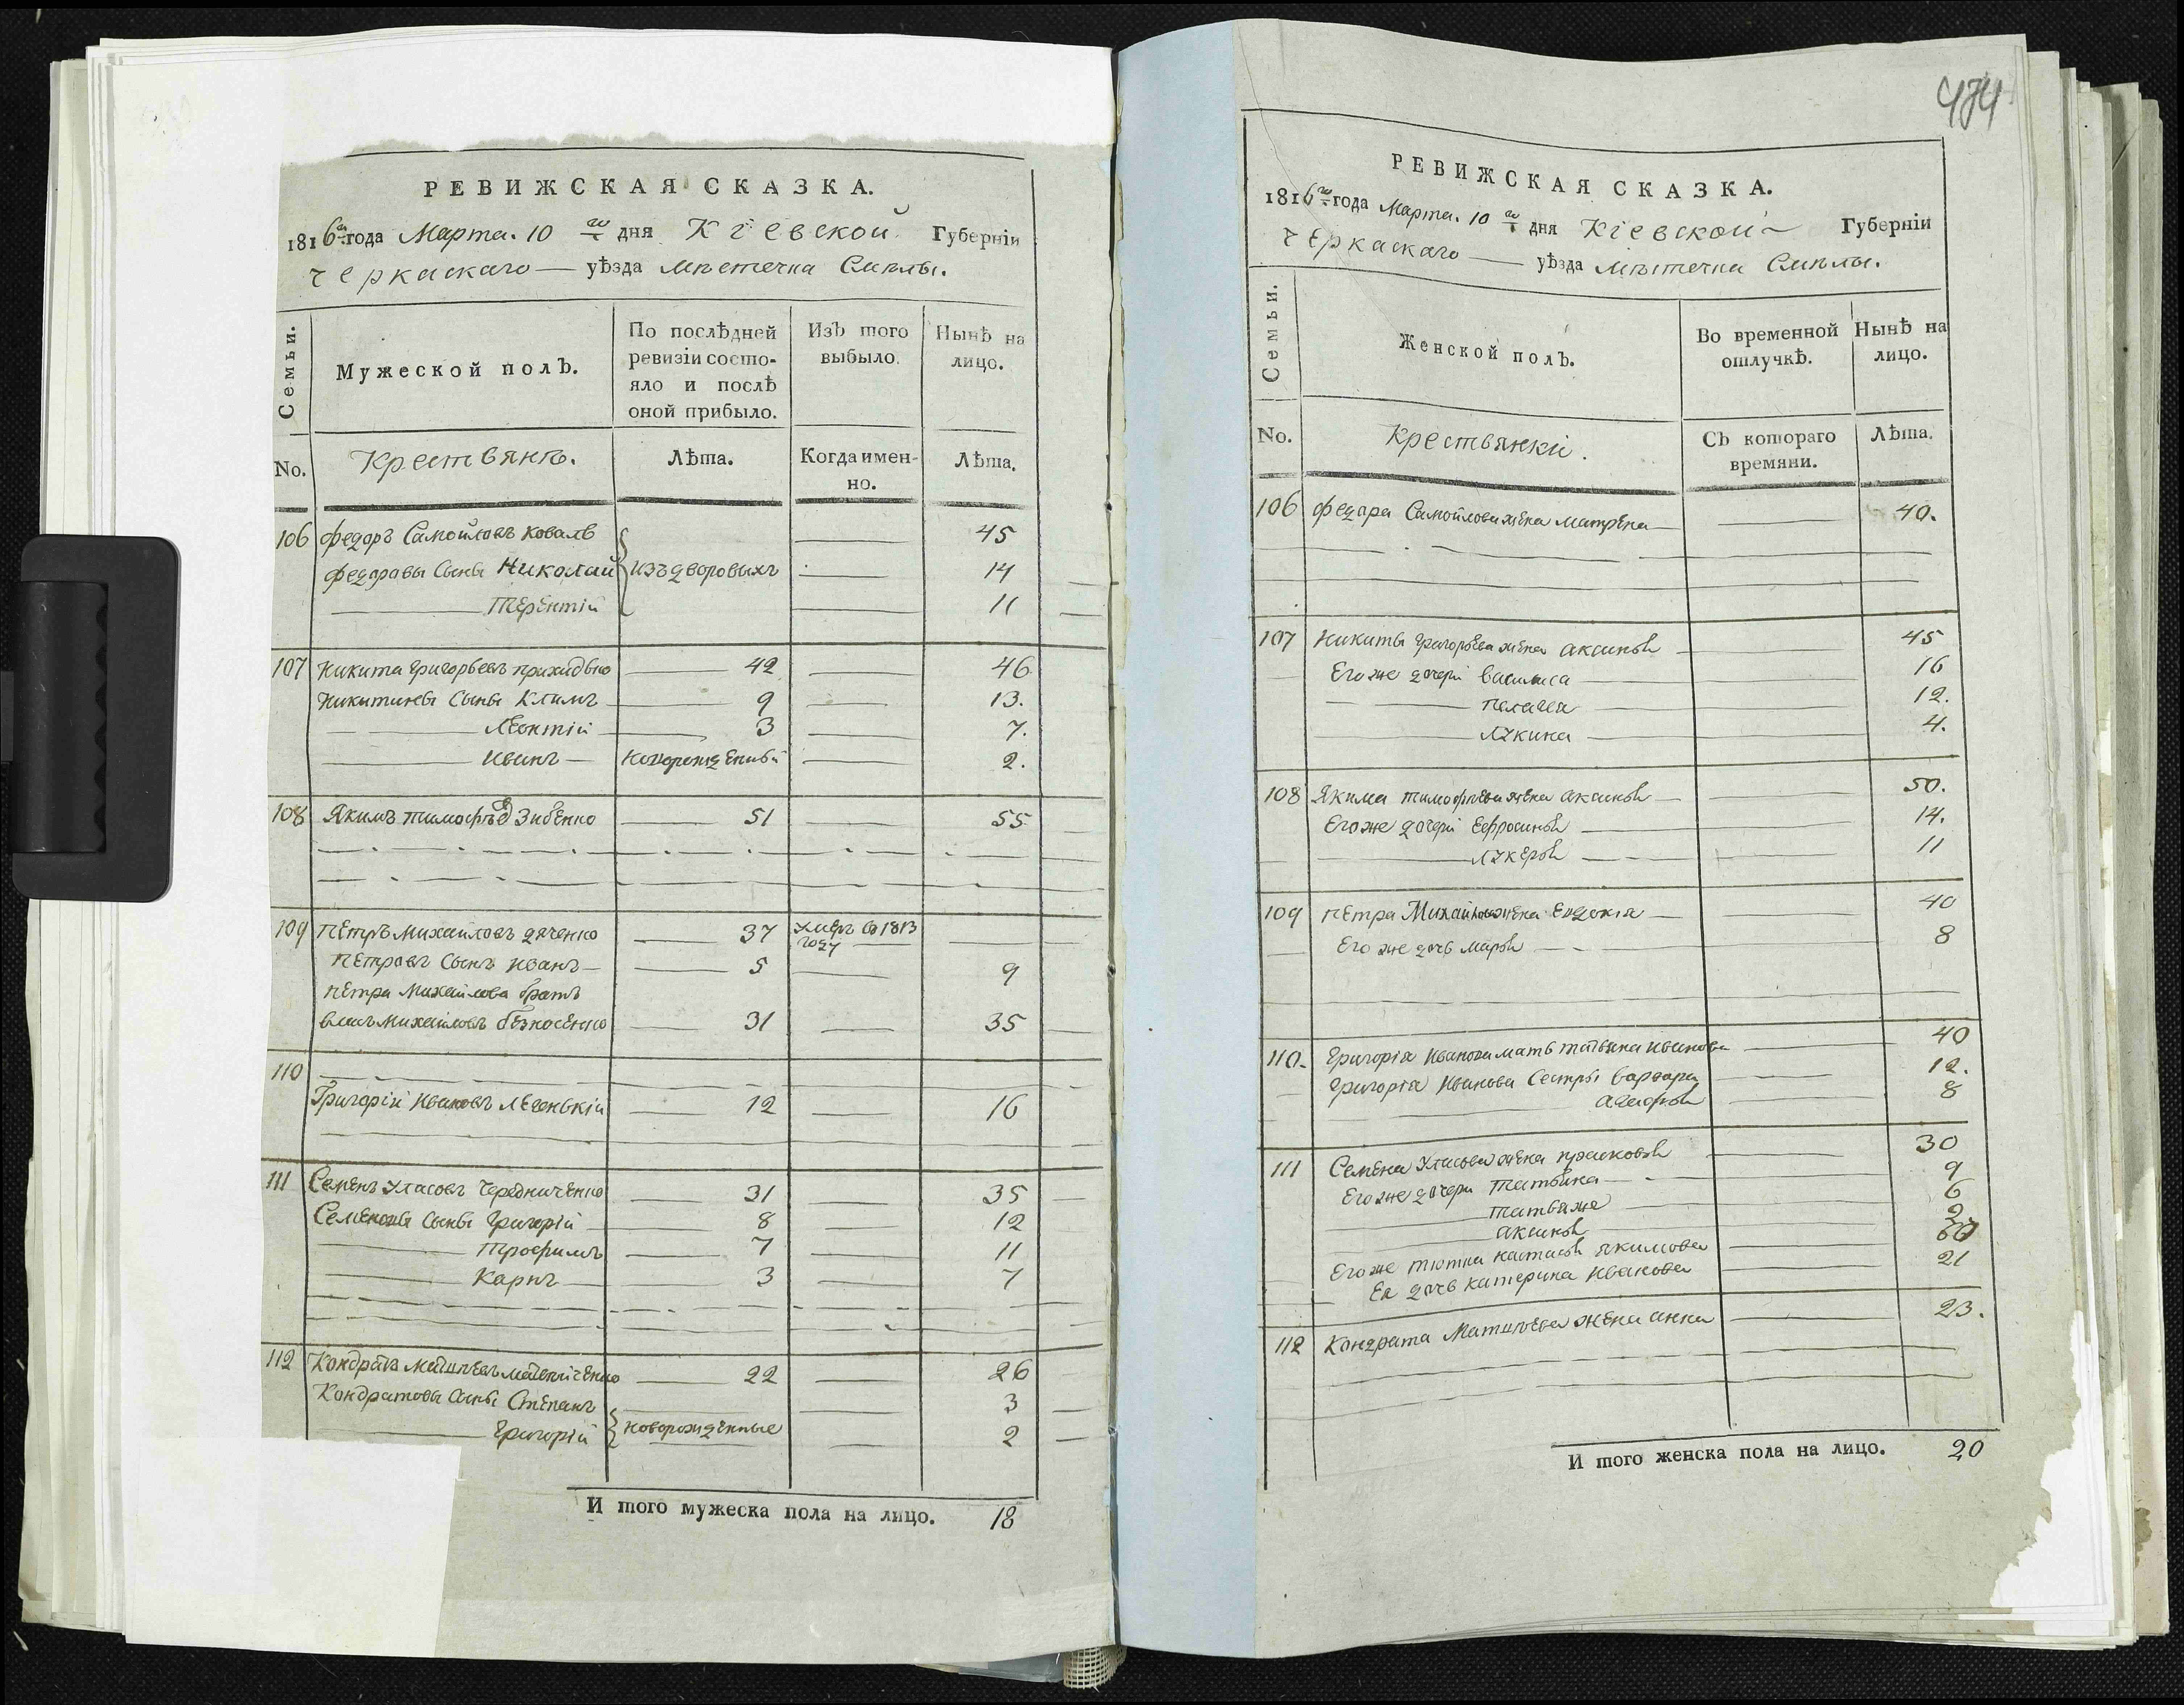 РЕВИЖСКАЯ СКАЗКА.
1816го года Марта. 10 го дня Кіевской Губерніи
Черкаскаго — уѣзда мѣстечка Смѣлы.
Семьи.
Мужеской полъ.
По послѣдней ревизіи состояло и послѣ оной прибыло.
Изъ того выбыло.
Нынѣ на лицо.
No.
Крестьянъ.
Лѣта.
Когда именно.
Лѣта.
106 Федоръ Самойловъ Коваль 45
Федоравы Сыны Николай изъ дворовыхъ 14
Терентій 11
107 Никита Григорьевъ 42 46
Никитины Сыны Климъ 9 13.
Леонтій 3 7.
Иванъ новорожденный 2.
108 Якимъ Тимофѣевъ Зибенко 51 55
109 Петръ Михайловъ Дяченко 37 умеръ въ 1813 году
Петравъ Сынъ Иванъ 5 9
Петра Михайлова братъ
Власъ Михайловъ Безносенко 31 35
110
Григорій Ивановъ Легенькій 12 16
111 Семенъ Уласовъ Чередниченко 31 35
Семеновы Сыны Григорій 8 12
Трофимъ 7 11
Карпъ 3 7
112 Кондратъ Матвѣевъ 22 26
Кондратовы Сыны Степанъ 3
Григорій новорожденные 2
И того мужеска пола на лицо. 18
474
РЕВИЖСКАЯ СКАЗКА.
1816го года Марта. 10 го дня Кіевской Губерніи
Черкаскаго — уѣзда мѣстечка Смѣлы.
Семьи.
Женской полъ.
Во временной отлучкѣ.
Нынѣ на лицо.
No.
Крестьянкі.
Съ котораго времяни.
Лѣта.
106 Федара Самойлова жена Матрена 40.
107 Никиты Григорьева жена Аксинья 45
Его же дочери Василиса 16
Пелагея 12.
Лукина 4.
108 Якима Тимофѣева жена Аксинья 50.
Его же дочери Ефросинья 14.
Лукеря 11
109 Петра Михайлова жена Евдокія 40
Его же дочь Марья 8
110. Григорія Иванова мать Татьяна Иванова 40
Григорія Иванова Сестры Варвара 12.
8
111 Семена Уласова жена Прасковья 30
Его же дочери Татьяна 9
Татьяна же 6
Аксинья 2
Его же тіотка Настасья Якимова
Ея дочь Катерина Иванова 21
112 Кондрата Матвѣева жена Анна 23.
И того женска пола на лицо. 20